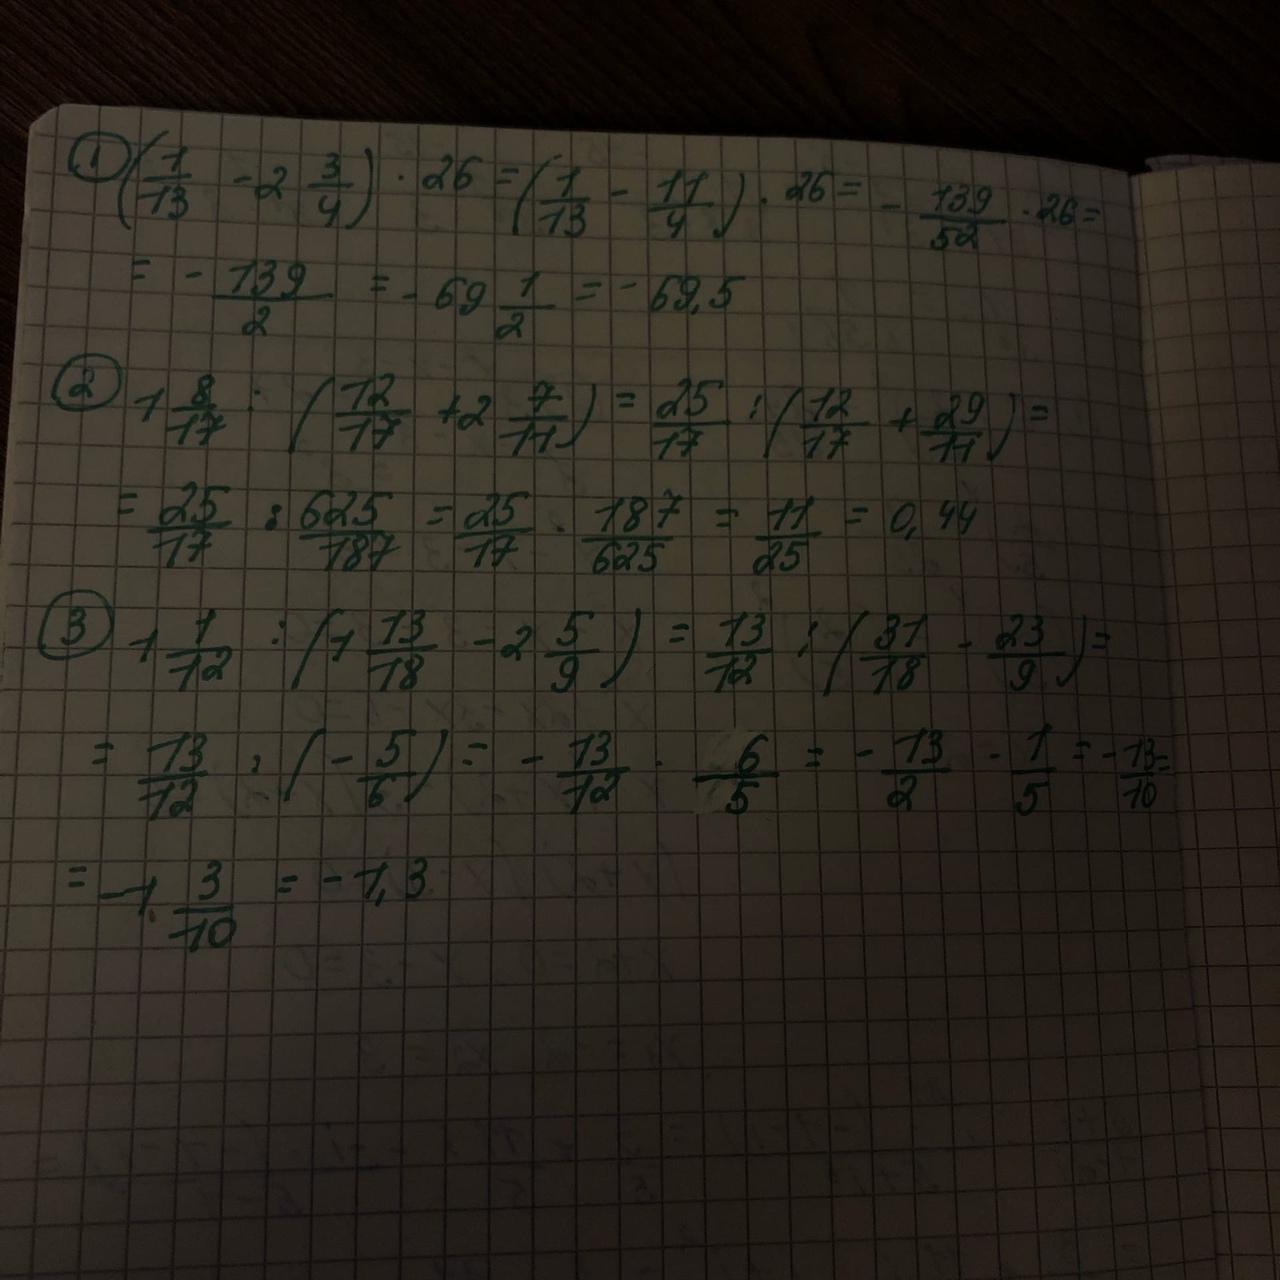 ① (1/13 - 2 3/4) · 26 = (1/13 - 11/4) · 26 = - 139/52 · 26 =
= - 139/2 = - 69 1/2 = - 69,5
② 1 8/17 : (12/17 + 2 7/11) = 25/17 : (12/17 + 29/11) =
= 25/17 : 625/187 = 25/17 · 187/625 = 11/25 = 0,44
③ 1 1/12 : (1 13/18 - 2 5/9) = 13/12 : (31/18 - 23/9) =
= 13/12 : (- 5/6) = - 13/12 · 6/5 = - 13/2 - 1/5 = - 13/10 =
= -1 3/10 = - 1,3